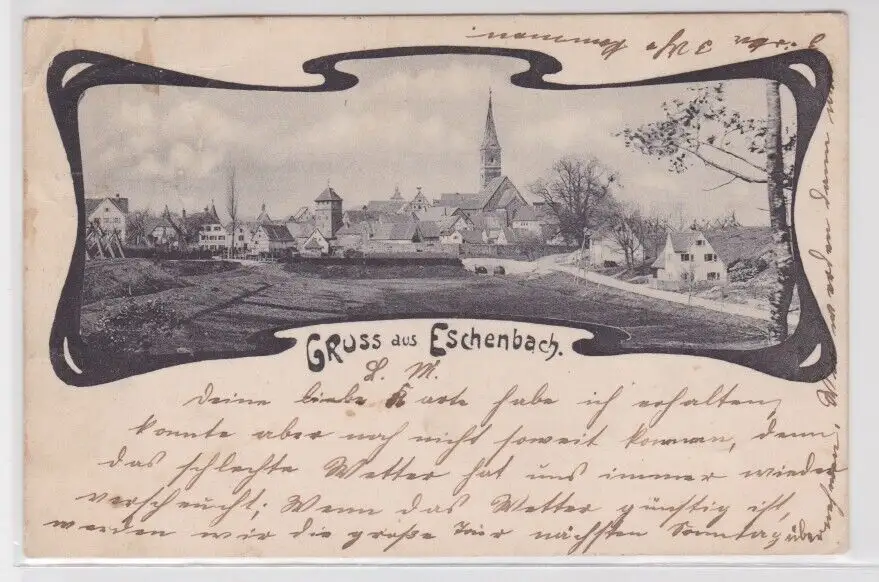 Gruss aus Eschenbach.
L. M.
Deine liebe Karte habe ich erhalten,
konnte aber noch nicht soweit kommen, denn
das schlechte Wetter hat uns immer wieder
verscheucht; Wenn das Wetter günstig ist,
werden wir die große Tour nächsten Sonntag über
nehmen.
3 Uhr kommen